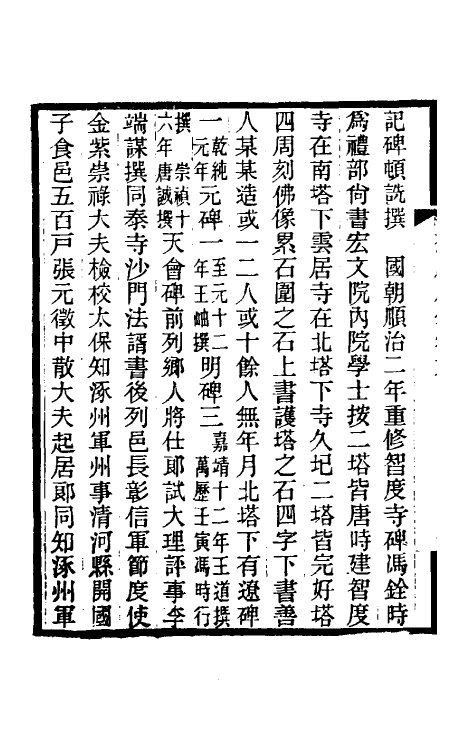 記碑頓詵撰　國朝順治二年重修智度寺碑馮銓時
爲禮部尚書宏文院內院學士按二塔皆唐時建智度
寺在南塔下雲居寺在北塔下寺久圮二塔皆完好塔
四周刻佛像累石圍之石上書護塔之石四字下書善
人某某造或一二人或十餘人無年月北塔下有遼碑
一乾統元年元碑一至元十二年王岫撰明碑三嘉靖十二年王道撰萬歷壬寅馮時行
撰崇禎十六年唐誠撰天會碑前列鄉人將仕郎試大理評事李
端謀撰同泰寺沙門法諝書後列邑長彰信軍節度使
金紫崇祿大夫檢校太保知涿州軍州事清河縣開國
子食邑五百戸張元徵中散大夫起居郎同知涿州軍